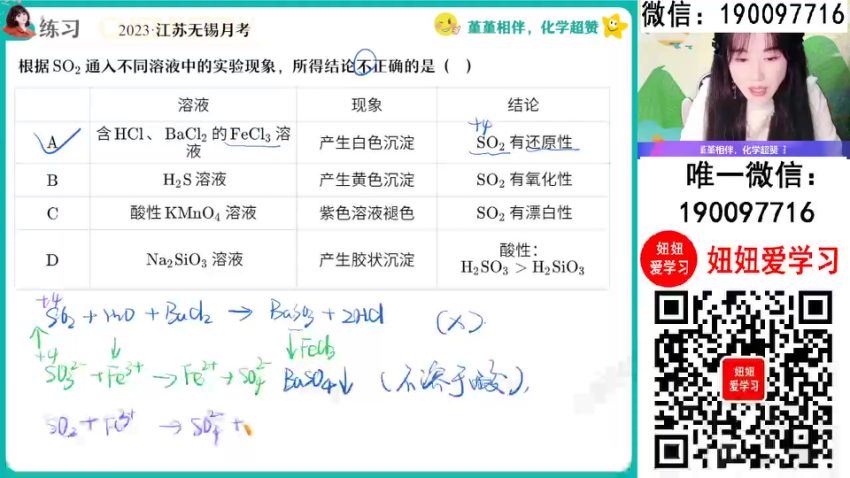 练习
2023·江苏无锡月考
堇堇相伴，化学超赞
微信：190097716
根据SO₂通入不同溶液中的实验现象，所得结论不正确的是（ ）
溶液 现象 结论
A 含HCl、BaCl₂的FeCl₃溶液 产生白色沉淀 SO₂有还原性
+4
B H₂S溶液 产生黄色沉淀 SO₂有氧化性
C 酸性KMnO₄溶液 紫色溶液褪色 SO₂有漂白性
D Na₂SiO₃溶液 产生胶状沉淀 酸性：H₂SO₃＞H₂SiO₃
+4
SO₂ + H₂O + BaCl₂ → BaSO₃ + 2HCl (×)
↓FeCl₃
+4
SO₃²⁻ + Fe³⁺ → Fe²⁺ + SO₄²⁻ BaSO₄↓ (不溶于酸)
SO₂ + Fe³⁺ → SO₄²⁻ +
堇堇相伴，化学超赞
唯一微信：
190097716
妞妞
爱学习
妞妞爱学习
妞妞
爱学习